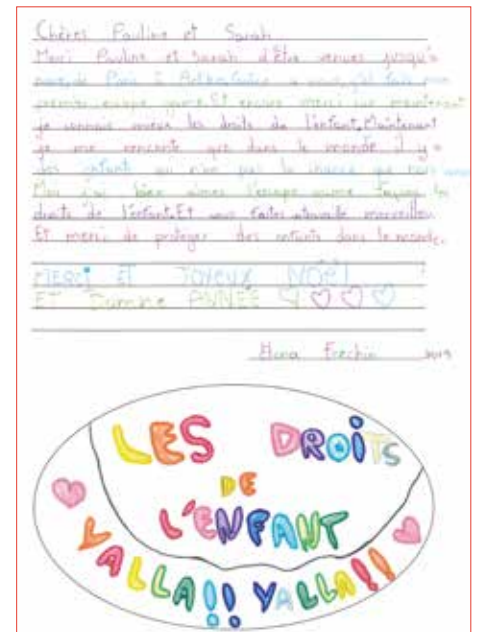 Chères Pauline et Sarah
Merci Pauline et Sarah d'être venues jusqu'à
de Paris à à vous, j'ai fait mon
premier escape game. Et encore merci car maintenant
je connais mieux les droits de l'enfant. Maintenant
je me renconte que dans le monde il y a
des enfants qui n'on pas la chance que nous
Moi j'ai bien aimer l'escape game les
droits de l'enfant. Et vous faites merveilleu
Et merci de protéger des enfants dans le monde.
MERCI ET JOYEUX NOËL
ET ANNÉE
2019
LES DROITS
DE
L'ENFANT
YALLA!! YALLA!!